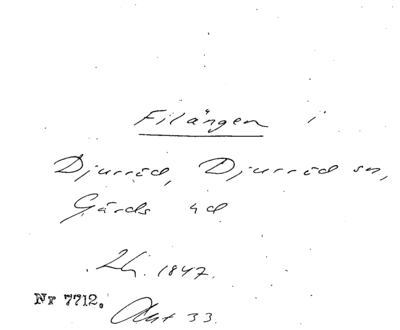 Filängen i
Djurröd, Djurröd sn,
Gärds hd
Lh. 1847.
Nr 7712. Akt 33.